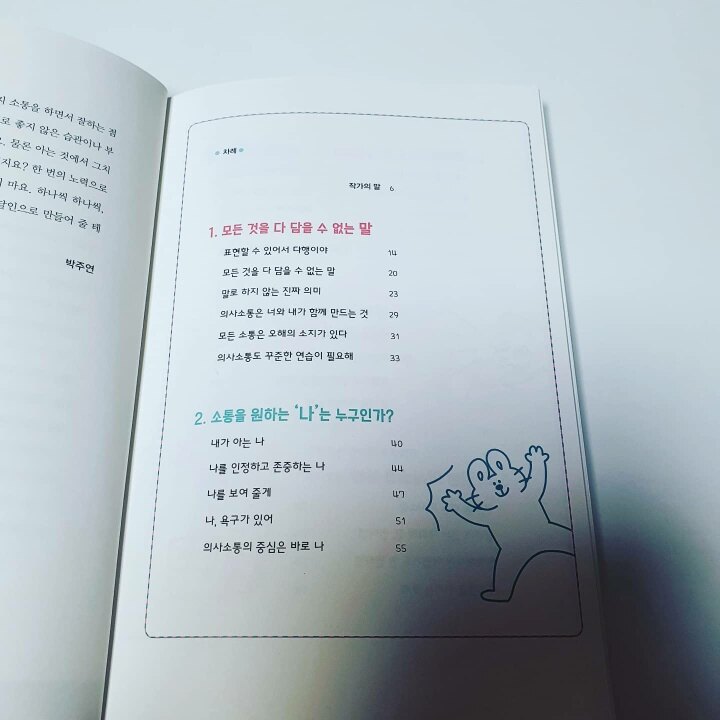 지 소통을 하면서 잘하는 점
로 좋지 않은 습관이나 부
요. 물론 아는 것에서 그치
지요? 한 번의 노력으로
마요. 하나씩 하나씩,
달인으로 만들어 줄 테
박주연
차례
작가의 말 6
1. 모든 것을 다 담을 수 없는 말
표현할 수 있어서 다행이야 14
모든 것을 다 담을 수 없는 말 20
말로 하지 않는 진짜 의미 23
의사소통은 너와 내가 함께 만드는 것 29
모든 소통은 오해의 소지가 있다 31
의사소통도 꾸준한 연습이 필요해 33
2. 소통을 원하는 ‘나’는 누구인가?
내가 아는 나 40
나를 인정하고 존중하는 나 44
나를 보여 줄게 47
나, 욕구가 있어 51
의사소통의 중심은 바로 나 55